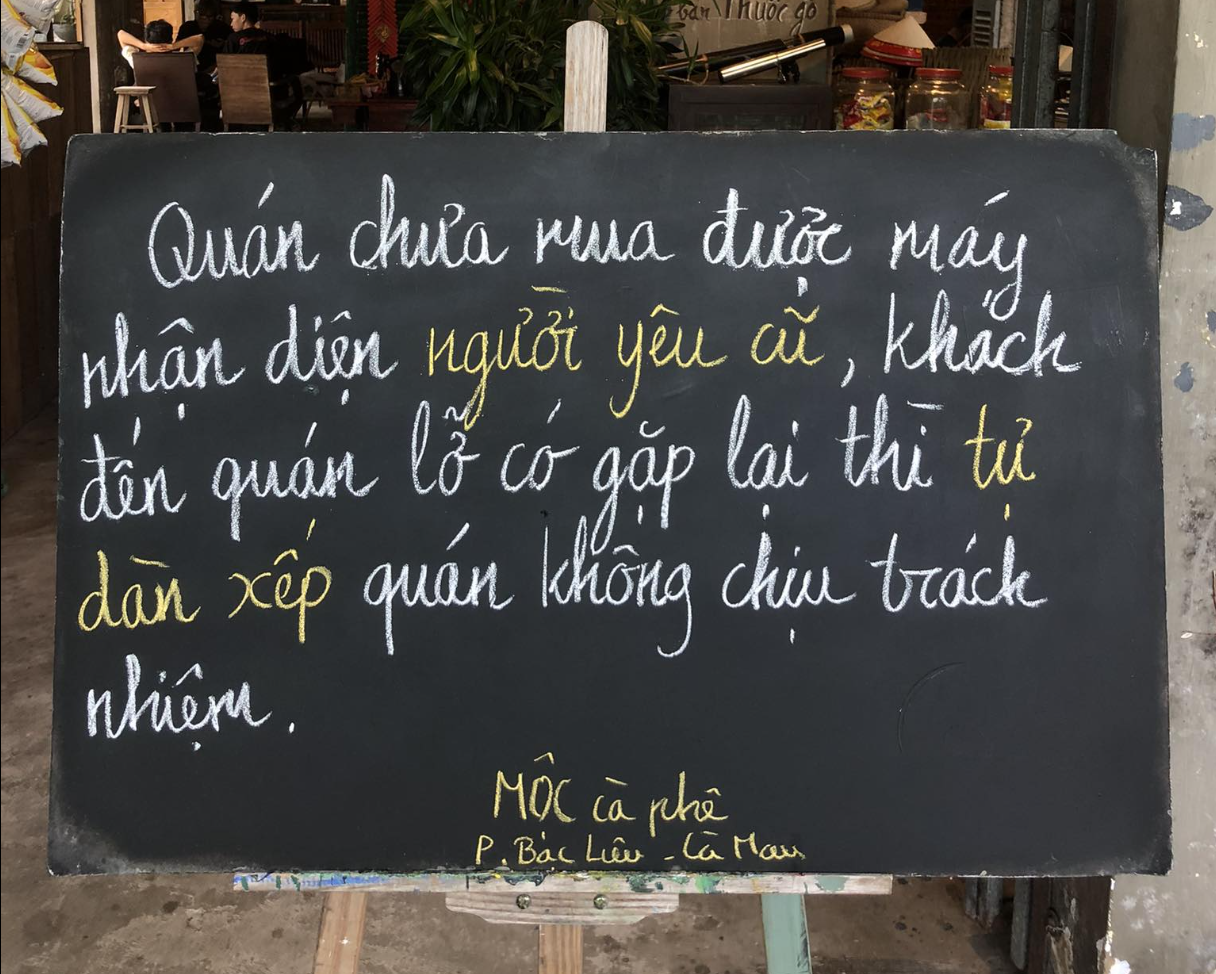 bán Thuốc gò
Quán chưa mua được máy
nhận diện người yêu cũ, khách
đến quán lỡ có gặp lại thì tự
dàn xếp quán không chịu trách
nhiệm.
MỘC cà phê
P. Bạc Liêu - Cà Mau